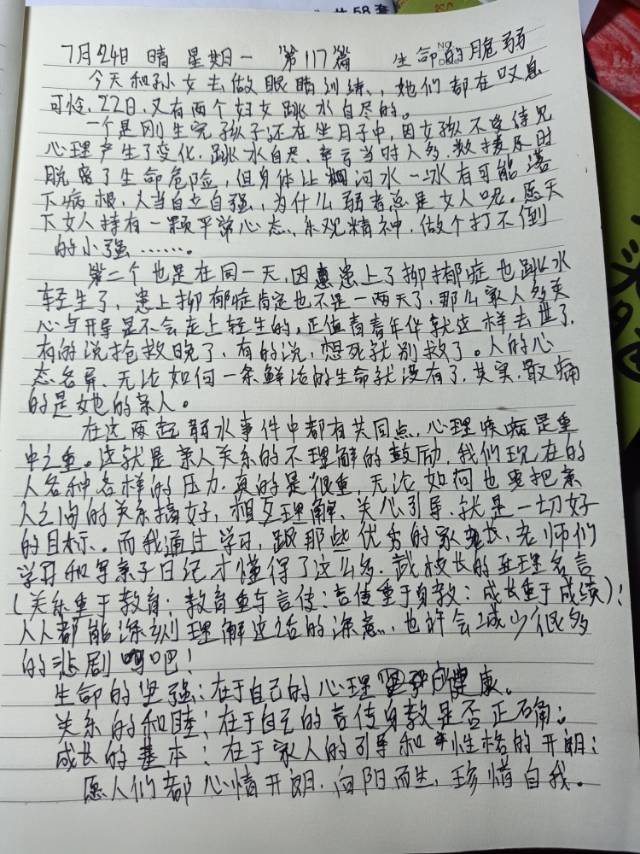 共58套
7月24日 晴 星期一 第117篇 生命的脆弱
今天和孙女去做眼睛训练,她们都在叹息
可怜,22日,又有两个妇女跳水自尽的。
一个是刚生完孩子还在坐月子中,因女孩不受待见
心理产生了变化,跳水自尽,幸亏当时人多,救援及时
脱离了生命危险,但身体让河水一冰有可能落
下病根,人当自立自强,为什么弱者总是女人呢。愿天
下女人持有一颗平常心态,乐观精神,做个打不倒
的小强……。
第二个也是在同一天,因患上了抑郁症也跳水
轻生了,患上抑郁症肯定也不是一两天了,那么家人多关
心与开导是不会走上轻生的,正值青青年华就这样去世了,
有的说抢救晚了,有的说,想死就别救了。人的心
态各异、无论如何一条鲜活的生命就没有了,其实,最痛
的是她的亲人。
在这两起溺水事件中都有共同点,心理疾病是重
中之重。这就是亲人关系的不理解的鼓励,我们现在的
人各种各样的压力,真的是很重,无论如何也要把亲
人之间的关系搞好,相互理解、关心引导,就是一切好
的目标。而我通过学习,跟那些优秀的家长,老师们
学习和写亲子日记,才懂得了这么多,武校长的至理名言
(关系重于教育;教育重于言传;言传重于身教;成长重于成绩);
人人都能深刻理解这话的深意,也许会减少很多
的悲剧吧!
生命的坚强:在于自己的心理健康。
关系的和睦:在于自己的言传身教是否正确;
成长的基本:在于家人的引导和性格的开朗;
愿人们都心情开朗,向阳而生,珍惜自我。